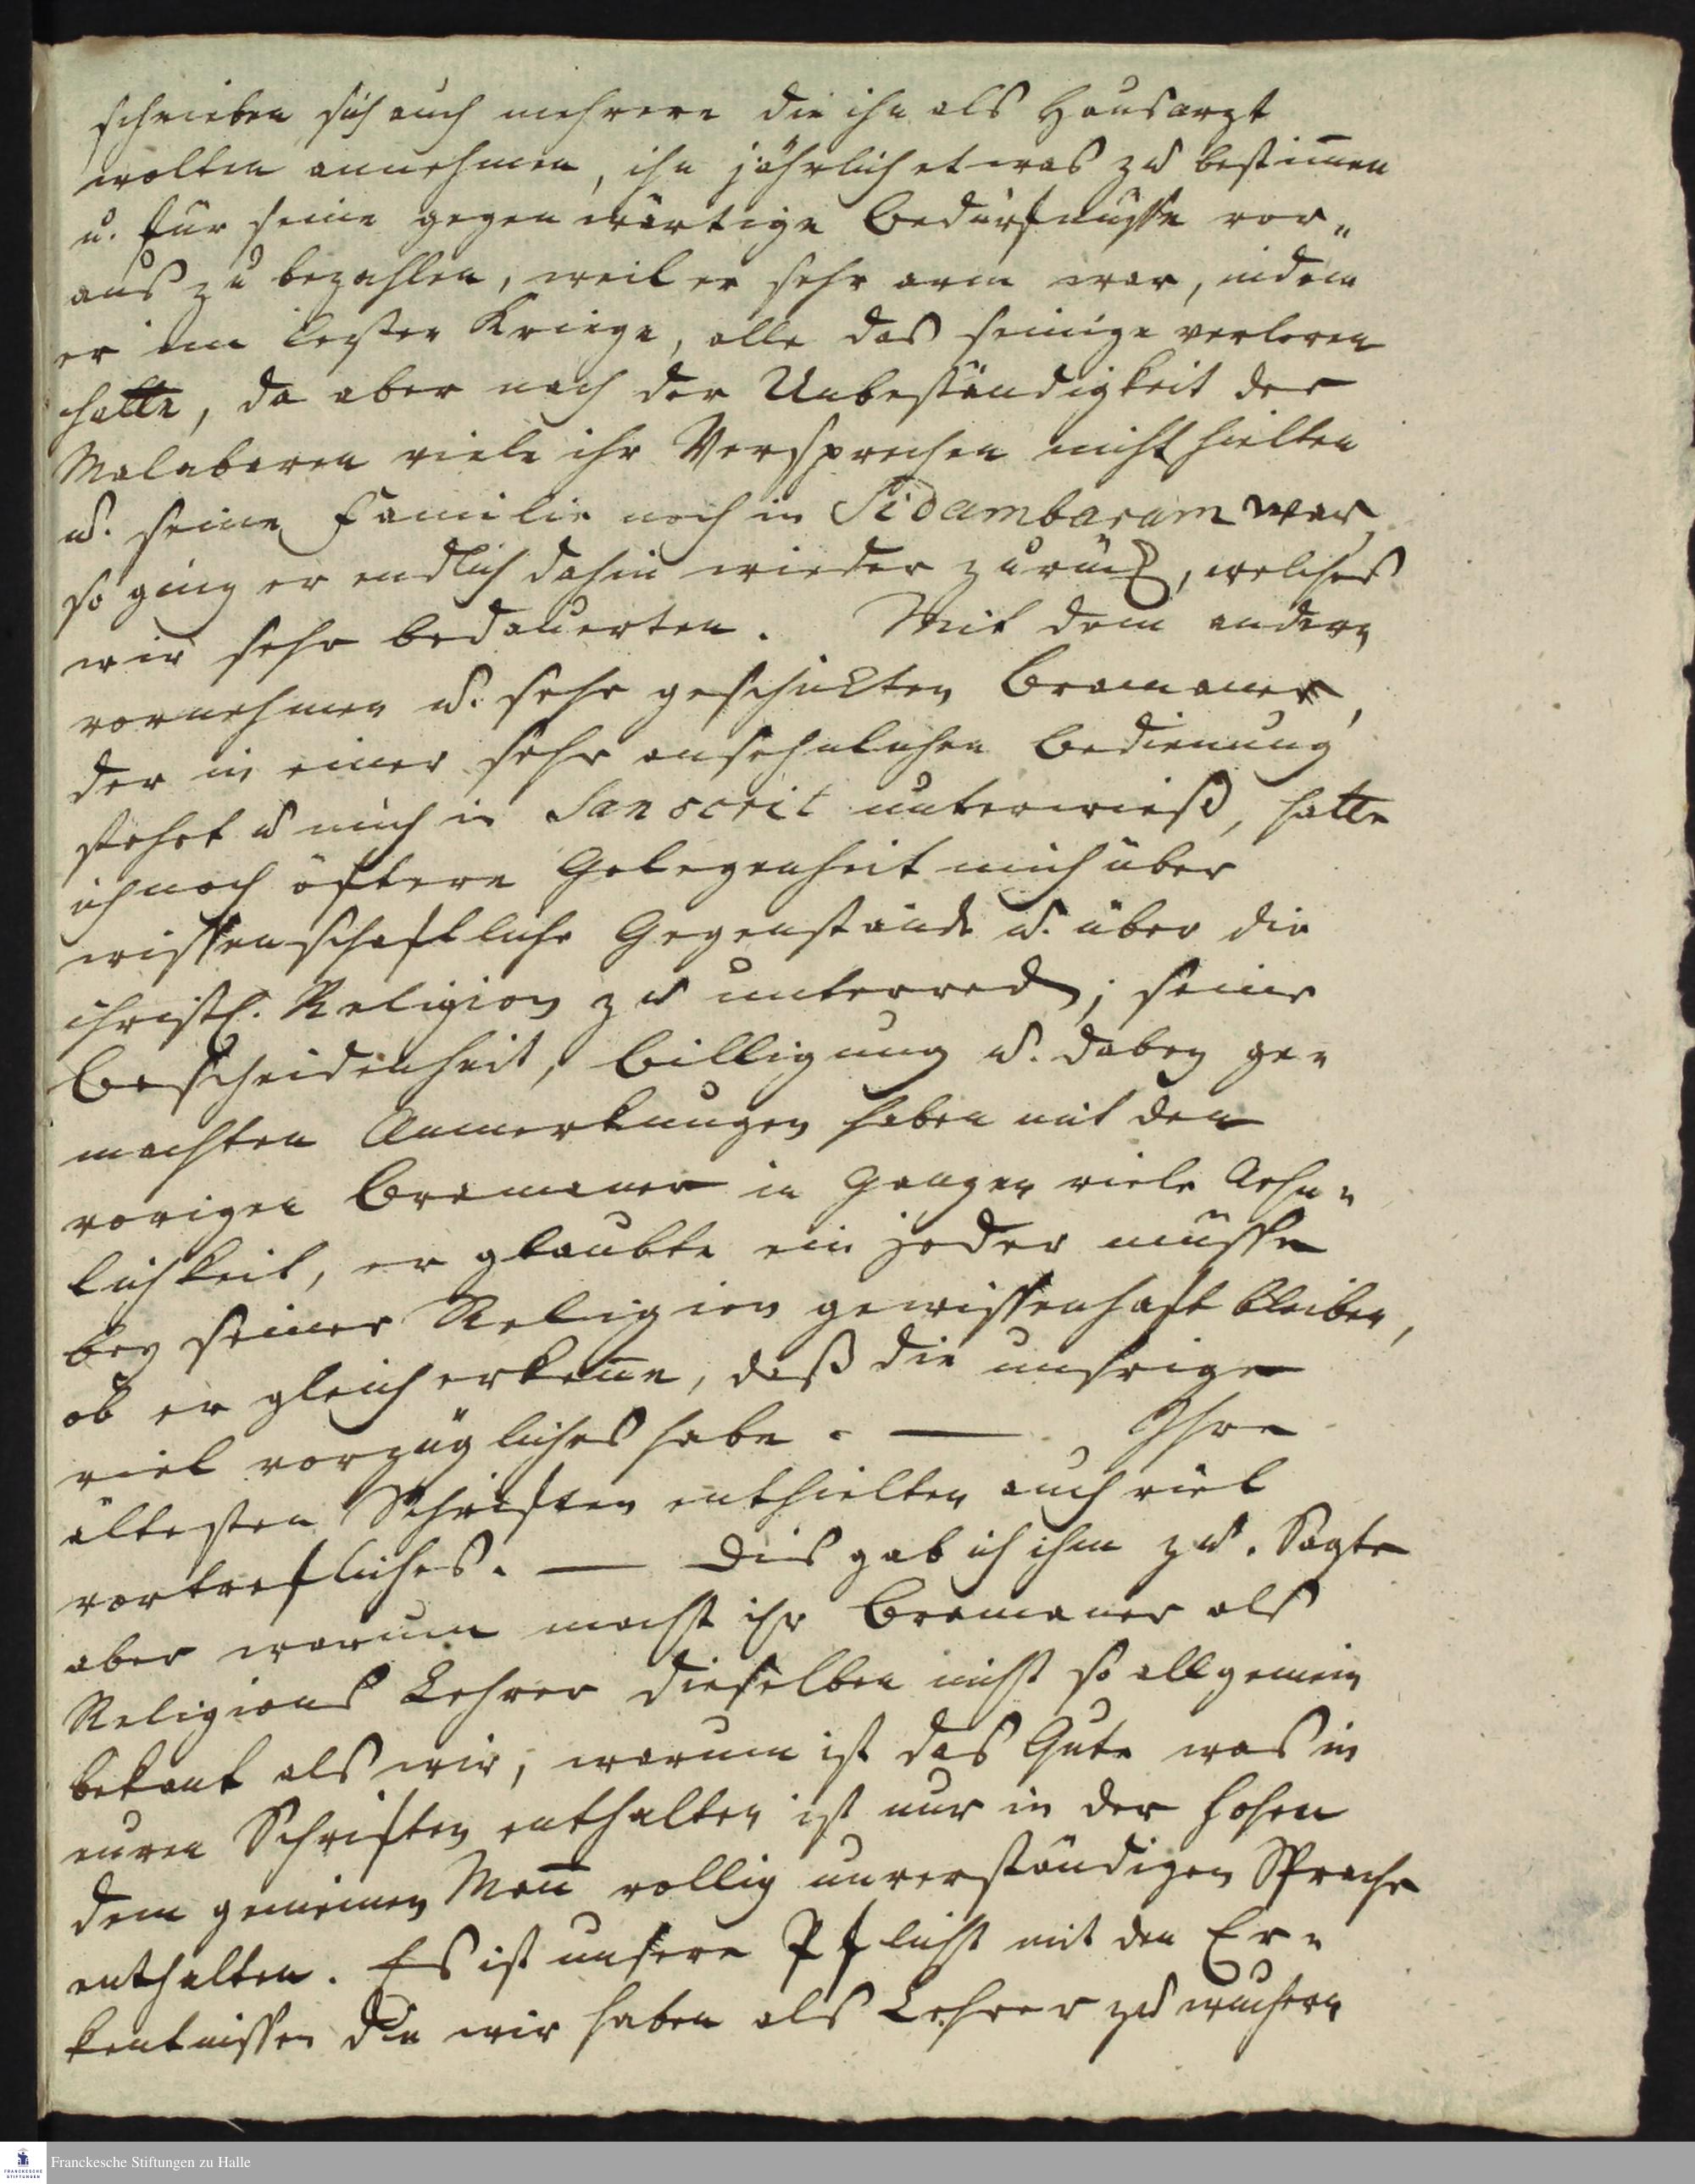 schrieben sich auch mehrere die ihn als Hausarzt
wolten annehmen, ihn jährlich etwas zu bestim̅en
u. für seine gegenwärtige Bedürfnüsse vor„
aus zu bezahlen, weil er sehr arm war, indem
er im lezten Kriege, alle das seinige verloren
hatte, da aber nach der Unbeständigkeit der
Malabaren viele ihr Versprechen nicht hielten
u. seine Familie noch in Sidambaram war,
so ging er endlich dahin wieder zurück, welches
wir sehr bedauerten. Mit dem andern
vornehmen u. sehr geschickten Bramaner,
der in einer sehr ansehnlichen Bedienung
stehet u mich in Sanscrit unterwieß, hatte
ich noch öftere Gelegenheit mich über
wissenschaftliche Gegenstände u. über die
christl. Religion zu unterreden; seine
Bescheidenheit, Billigung u. dabey ge„
machten Anmerkungen haben mit den
vorigen Bramaner in Ganzen viele Aehn„
lichkeit, er glaubte ein jeder müsse
bey seiner Religion gewissenhaft bleiben,
ob er gleich erken̅e, daß die unsrige
viel vorzügliches habe. — Ihre
ältesten Schriften enthielten auch viel
vortrefliches. — Dies gab ich ihm zu. Sagte
aber warum macht ihr Bramaner als
Religions Lehrer dieselben nicht so allgemein
bekant als wir, warum ist das Gute was in
euren Schriften enthalten ist nur in der hohen
dem gemeinen Man̅ vollig unverständigen Sprache
enthalten. Es ist unsere Pflicht mit den Er„
kentnissen die wir haben als Lehrer zu wuchern
Franckesche Stiftungen zu Halle